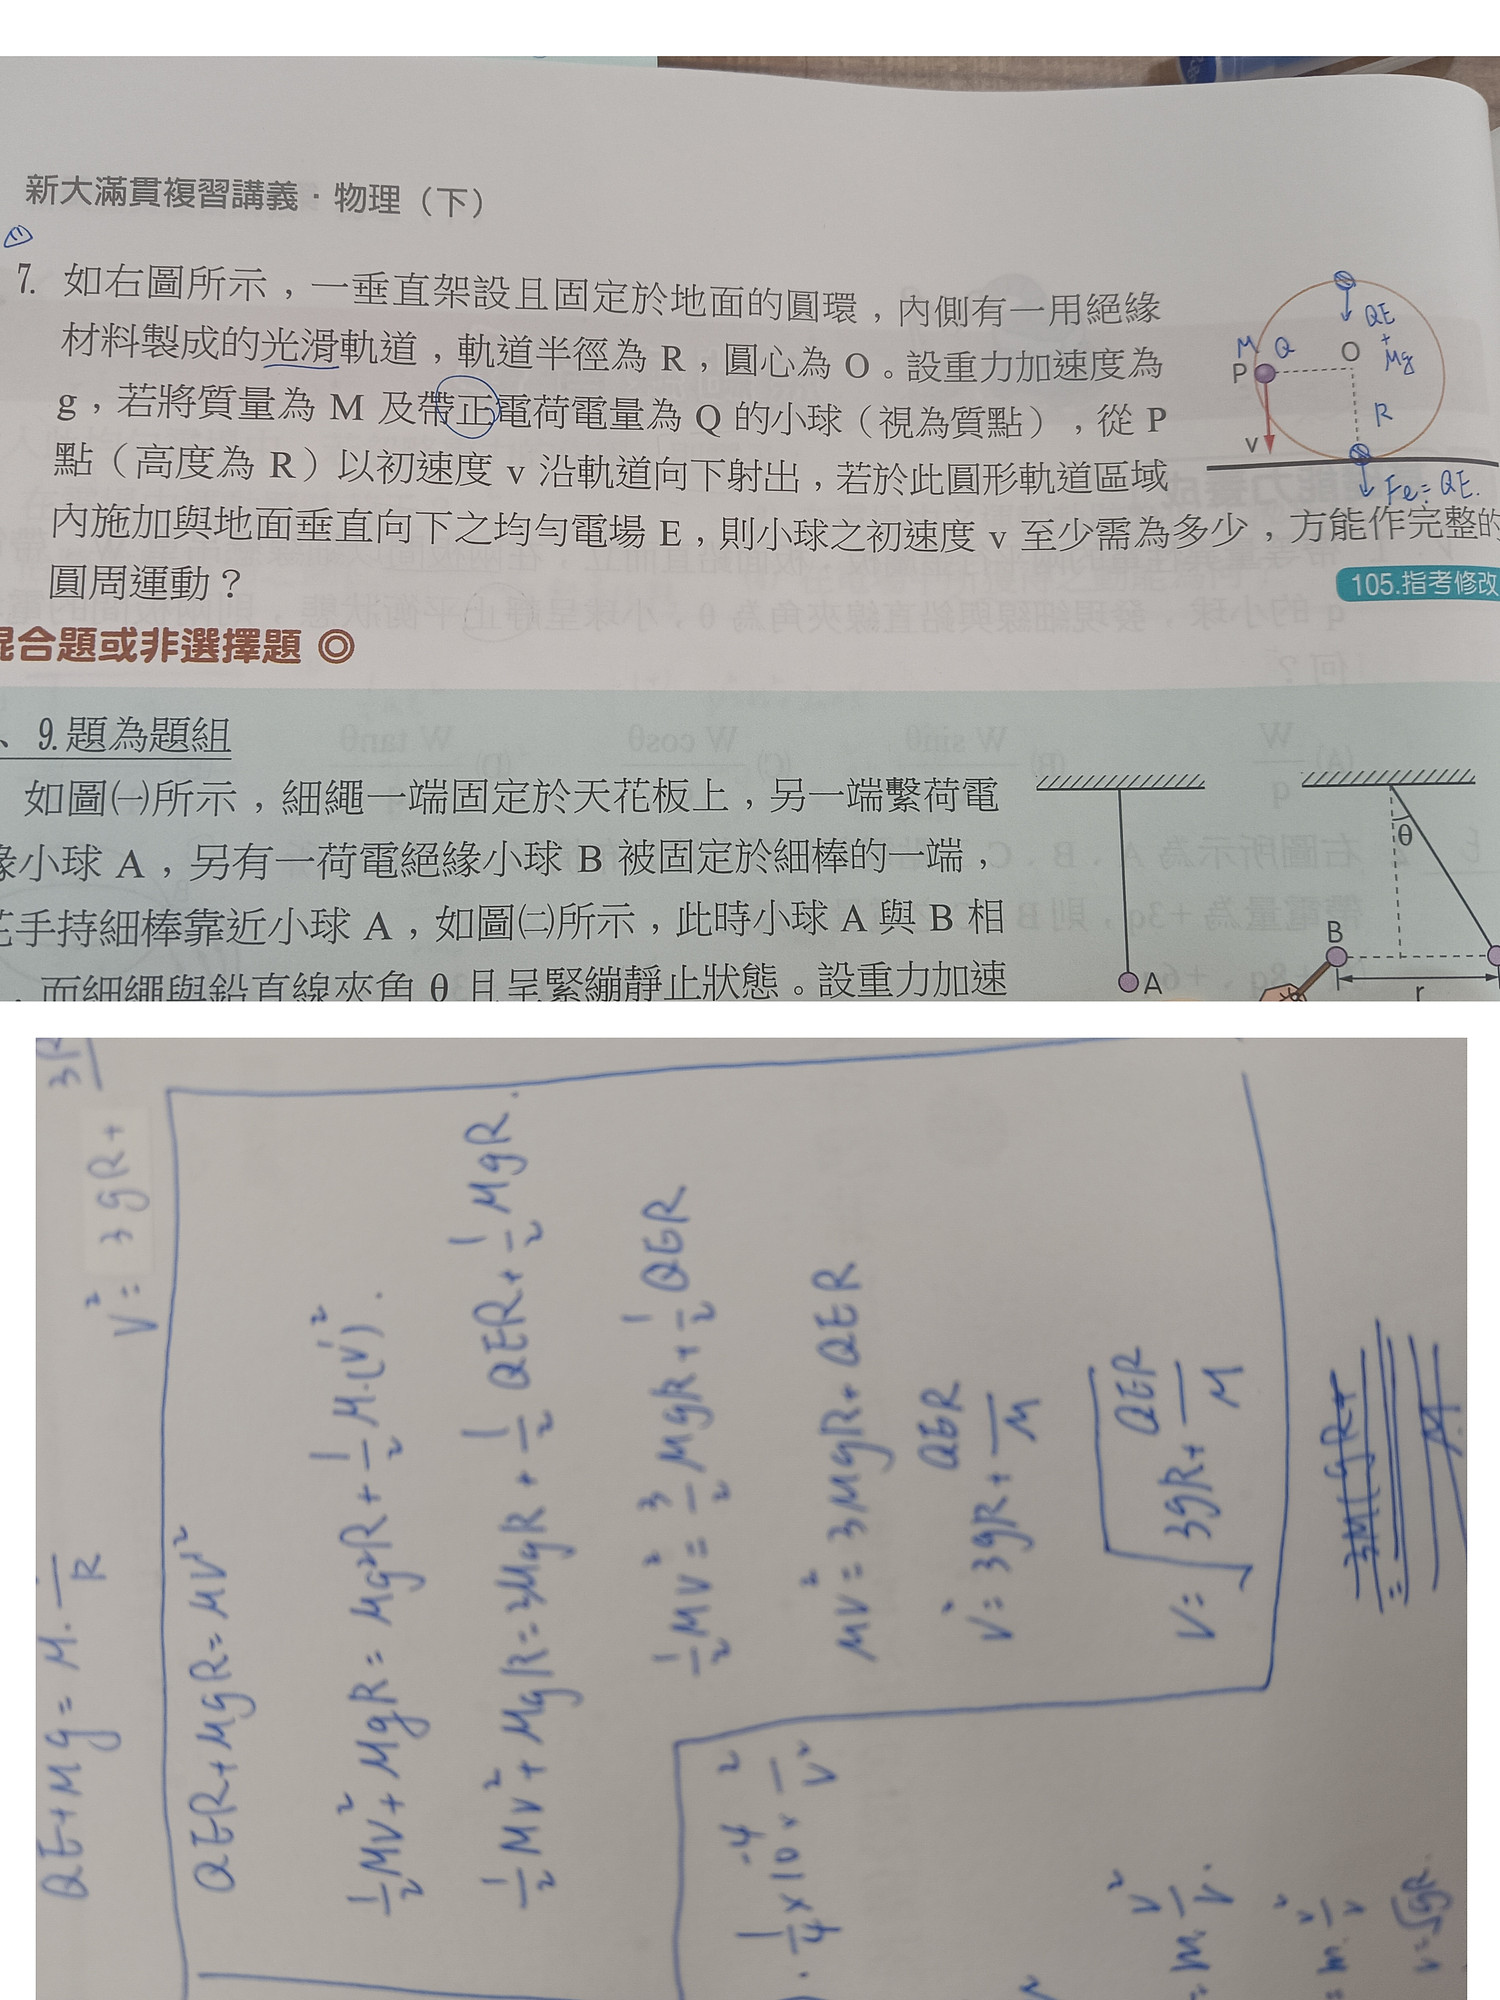 新大滿貫複習講義・物理（下）
7. 如右圖所示，一垂直架設且固定於地面的圓環，內側有一用絕緣
材料製成的光滑軌道，軌道半徑為 R，圓心為 O。設重力加速度為
g，若將質量為 M 及帶正電荷電量為 Q 的小球（視為質點），從 P
點（高度為 R）以初速度 v 沿軌道向下射出，若於此圓形軌道區域
內施加與地面垂直向下之均勻電場 E，則小球之初速度 v 至少需為多少，方能作完整的
圓周運動？
105.指考修改
M Q
P
O
v
QE
+
Mg
R
Fe=QE.
混合題或非選擇題 ◎
、9.題為題組
如圖㈠所示，細繩一端固定於天花板上，另一端繫荷電
緣小球 A，另有一荷電絕緣小球 B 被固定於細棒的一端，
手持細棒靠近小球 A，如圖㈡所示，此時小球 A 與 B 相
，而細繩與鉛直線夾角 θ 且呈緊繃靜止狀態。設重力加速
A
θ
B
r
QE+Mg=M·—/R
V²=3gR+
3R
QER+MgR=MV'²
½MV²+MgR=Mg2R+½M·(V')².
½MV²+MgR=2MgR+½QER+½MgR.
½MV²=3/2MgR+½QER
MV²=3MgR+QER
V²=3gR+QER/M
V=√(3gR+QER/M)